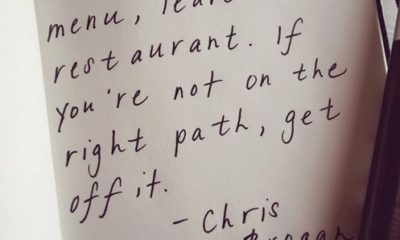 menu,
restaurant. If
you're not on the
right path, get
off it.
- Chris